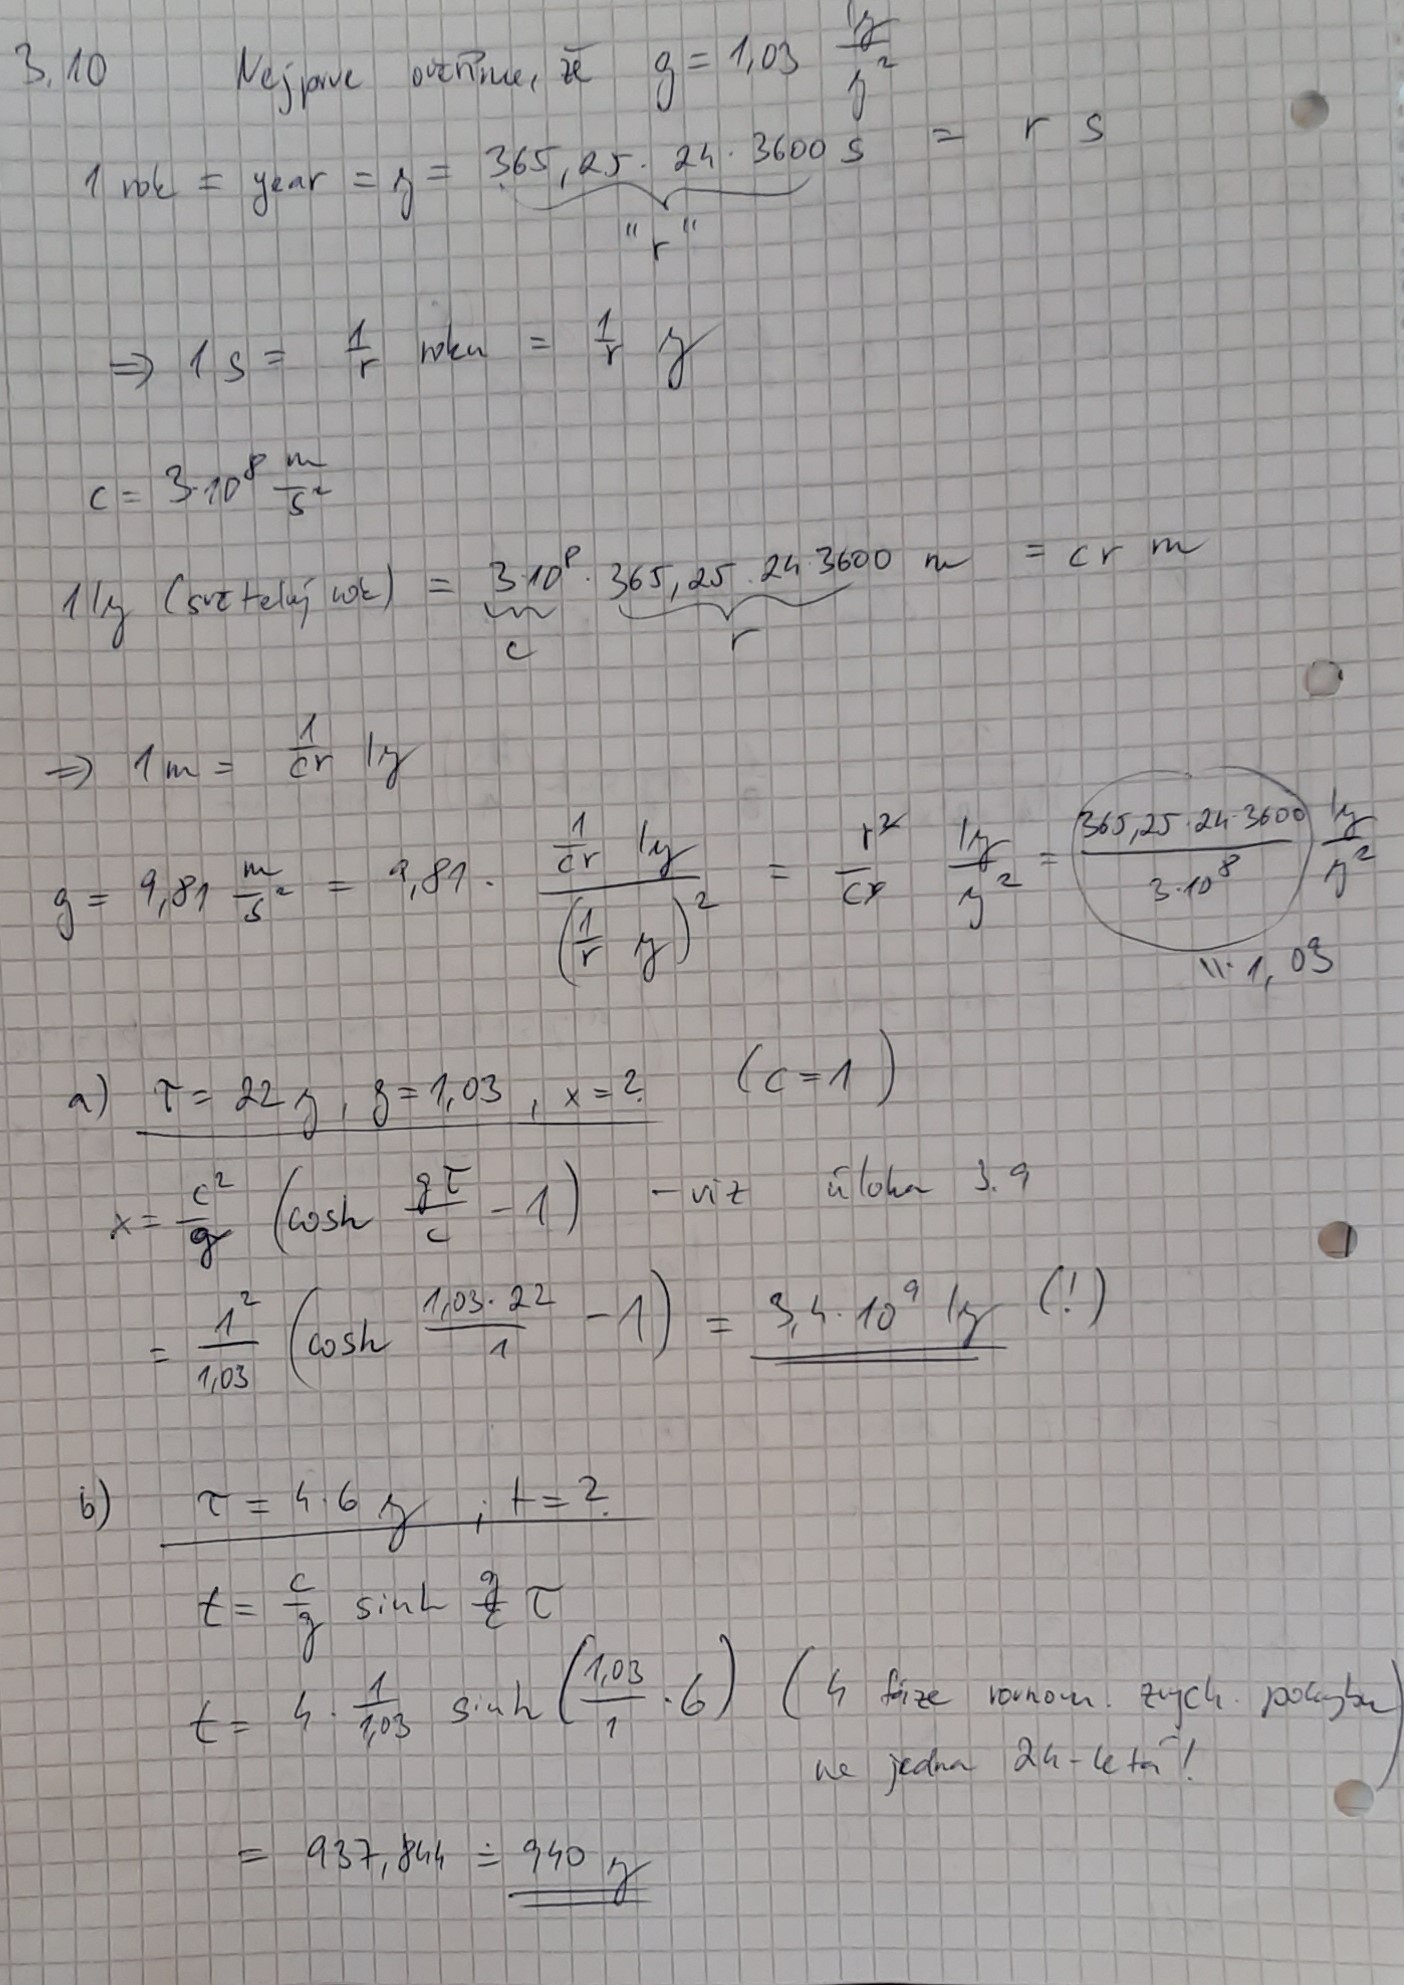 3.10 Nejprve ověříme, že g = 1,03 ly/y²
1 rok = year = y = 365,25 · 24 · 3600 s = r s
"r"
⇒ 1 s = 1/r roku = 1/r y
c = 3·10⁸ m/s²
1 ly (světelný rok) = 3·10⁸ · 365,25 · 24 · 3600 m = cr m
c r
⇒ 1 m = 1/cr ly
g = 9,81 m/s² = 9,81 · (1/cr ly)/(1/r y)² = r²/cr ly/y² = (365,25 · 24 · 3600)/(3·10⁸) ly/y²
1,03
a) τ = 22 y, g = 1,03, x = ? (c = 1)
x = c²/g (cosh gτ/c − 1) - viz úloha 3.9
= 1²/1,03 (cosh (1,03 · 22)/1 − 1) = 3,4 · 10⁹ ly (!)
b) τ = 4·6 y ; t = ?
t = c/g sinh g/c τ
t = 4 · 1/1,03 sinh (1,03/1 · 6) (4 fáze rovnom. zrych. pohybu
ne jedna 24-letá!)
= 937,844 ≐ 940 y